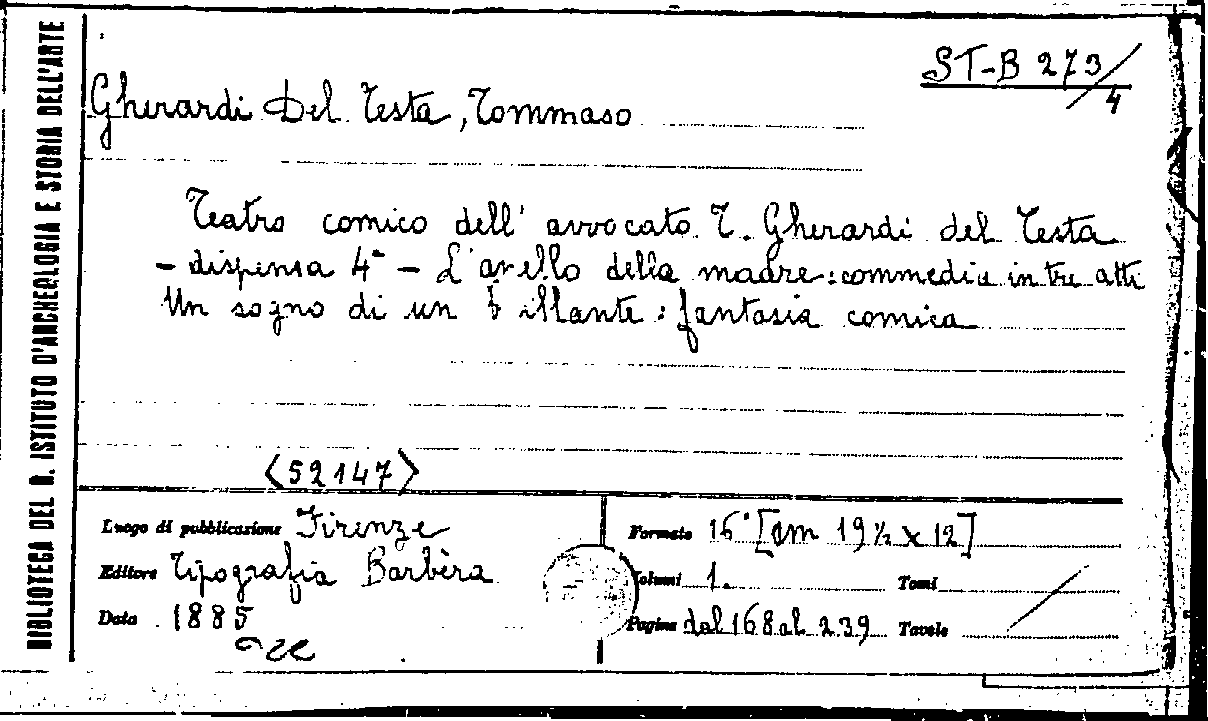 BIBLIOTECA DEL R. ISTITUTO D'ARCHEOLOGIA E STORIA DELL'ARTE
ST-B 273/4
Gherardi Del Testa, Tommaso
Teatro comico dell' avvocato T. Gherardi del Testa
- dispensa 4ª - L'anello della madre: commedia in tre atti
Un sogno di un b illante: fantasia comica
<52147>
Luogo di pubblicazione Firenze
Editore Tipografia Barbèra
Data 1885
Formato 16° [cm 19½ x 12]
Volumi 1. Tomi
Pagine dal 168 al 239 Tavole